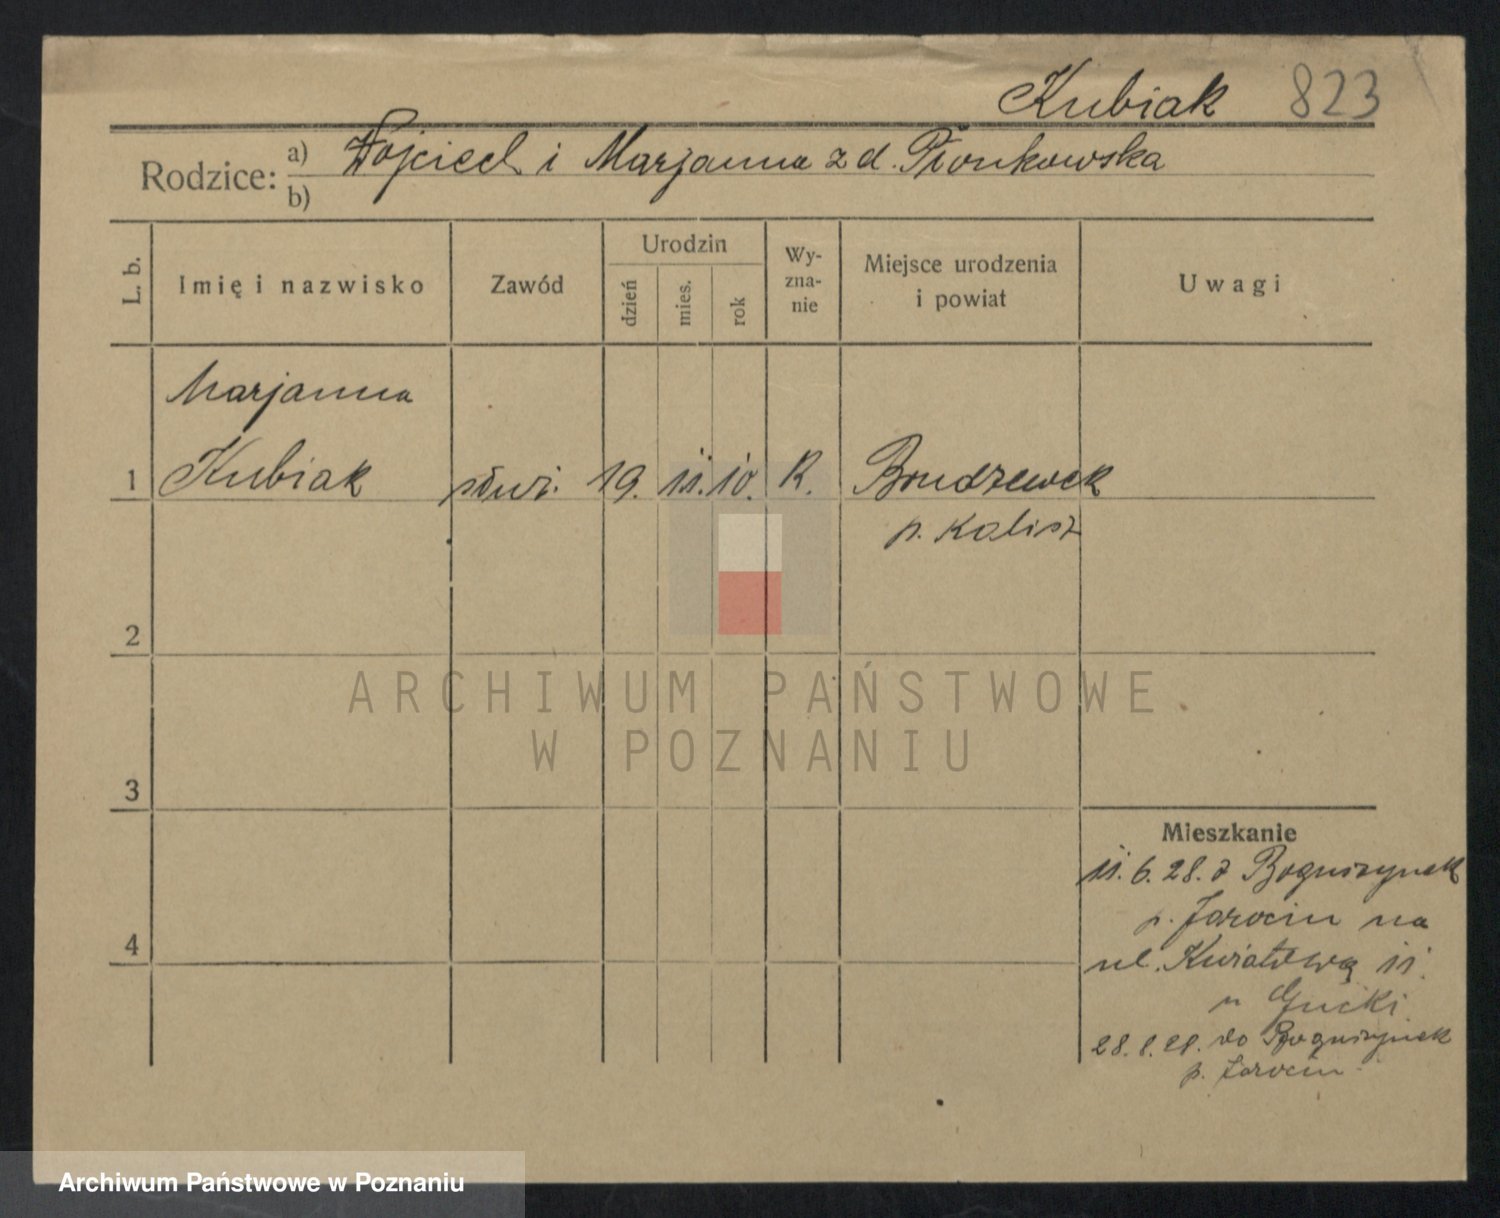 Kubiak 823
Rodzice: a) Wojciech i Marjanna z d. Pionkowska
b)
L. b. Imię i nazwisko Zawód Urodzin dzień mies. rok Wy-zna-nie Miejsce urodzenia i powiat Uwagi
Marjanna
1 Kubiak służ. 19. 11. 10. R. Brudzewek
p. Kalisz
2
ARCHIWUM PAŃSTWOWE
W POZNANIU
3
Mieszkanie
11. 6. 28. z Boguszynek
p. Jarocin na
4
ul. Kwiatową 11.
u Gucki
28. 8. 28. do Boguszynek
p. Jarocin
Archiwum Państwowe w Poznaniu